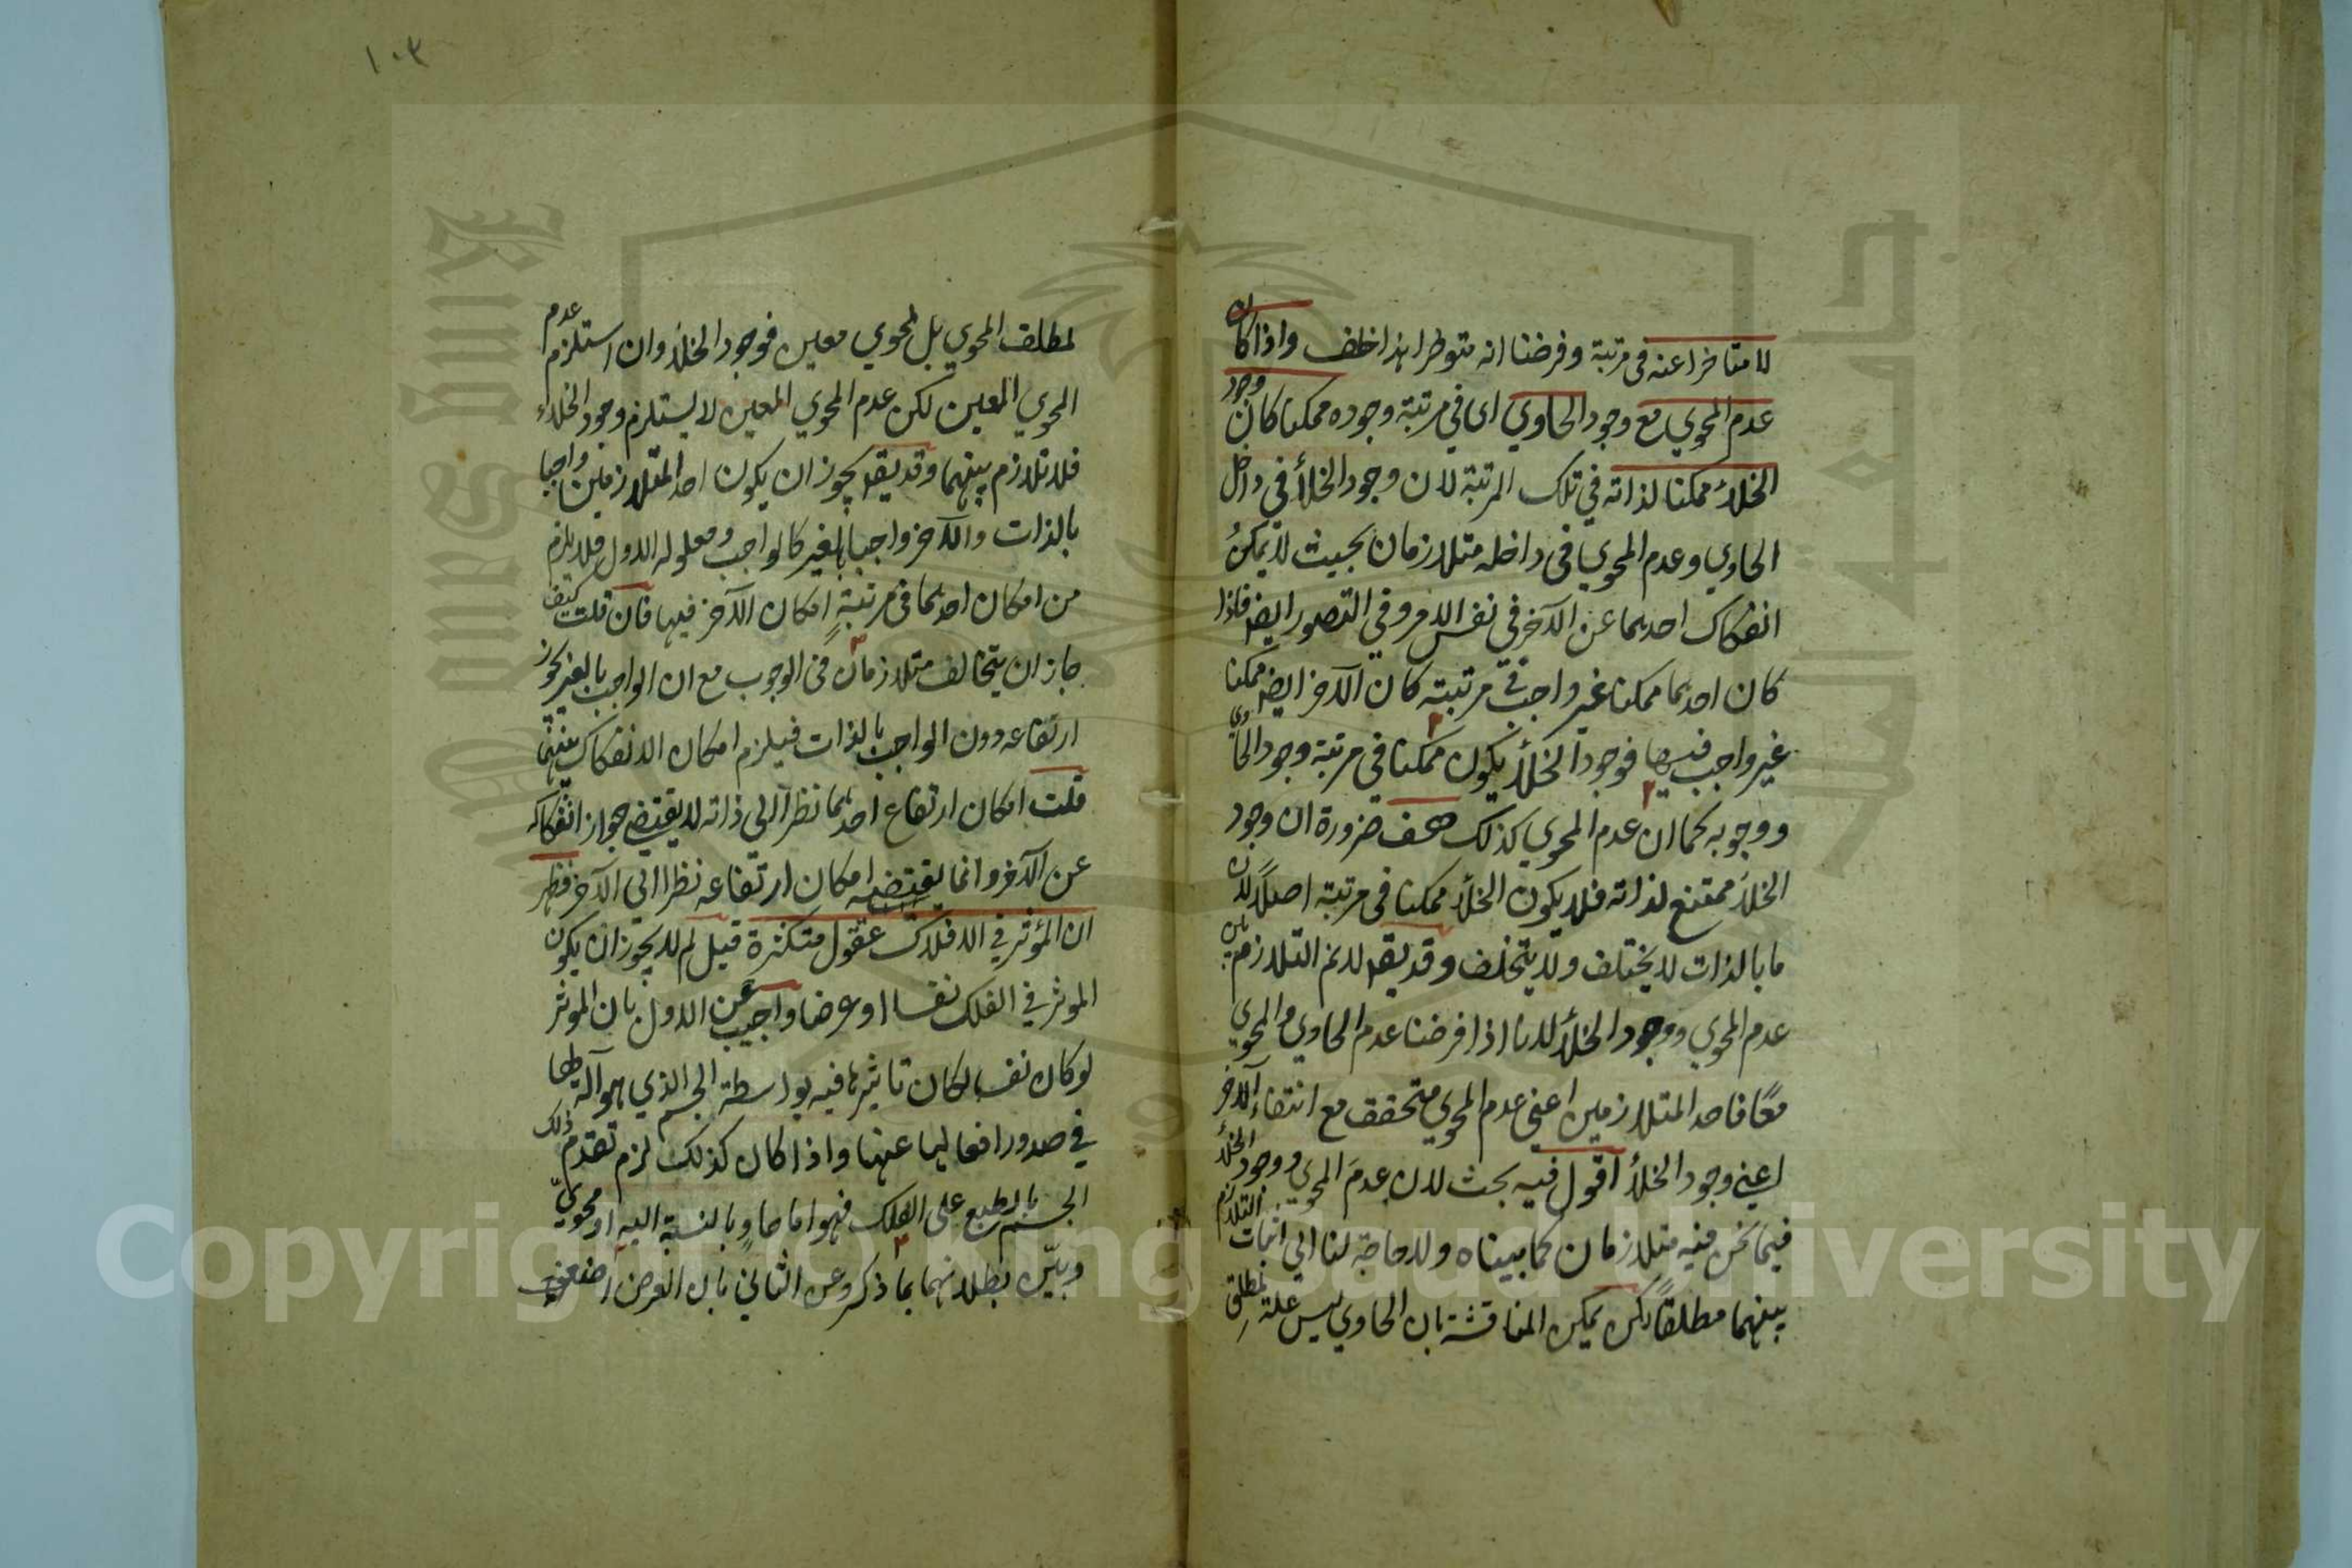 لا متاخرا عنه فى مرتبة وفرضنا انه متوطرا هذا خلف واذا كان
عدم المحوي مع وجود الحاوي اى في مرتبة وجوده ممكنا كان وجود
الخلاء ممكنا لذاته في تلك المرتبة لان وجود الخلأ في داخل
الحاوي وعدم المحوي فى داخله متلازمان بحيث لا يمكن
انفكاك احدهما عن الآخر في نفس الامر وفي التصور ايضا فاذا
كان احدهما ممكنا غير واجب في مرتبته كان الآخر ايضا ممكنا
غير واجب فيها فوجود الخلأ يكون ممكنا في مرتبة وجود الحاوي
ووجوبه كما ان عدم المحوي كذلك هف ضرورة ان وجود
الخلأ ممتنع لذاته فلا يكون الخلأ ممكنا فى مرتبة اصلاً لان
ما بالذات لا يختلف ولا يتخلف وقد يقـ لا نم التلازم بين
عدم المحوي ووجود الخلأ لانا اذا فرضنا عدم الحاوي والمحوي
معًا فاحد المتلازمين اعني عدم المحوي متحقق مع انتفاء الآخر
اعني وجود الخلأ اقول فيه بحث لان عدم المحوي ووجود الخلأ
فيما نحن فيه متلازمان كما بيناه ولا حاجة لنا الى اثبات التلازم
بينهما مطلقاً لكن يمكن المناقشة بان الحاوي ليس علة لمطلق
١٠٣
لمطلق المحوي بل لمحوي معين فوجود الخلأ وان استلزم عدم
المحوي المعين لكن عدم المحوي المعين لا يستلزم وجود الخلاء
فلا تلازم بينهما وقد يقـ يجوز ان يكون احد المتلازمين واجبا
بالذات والآخر واجبا بالغير كالواجب ومعلوله الاول فلا يلزم
من امكان احدهما فى مرتبة امكان الآخر فيها فان قلت كيف
جاز ان يتخالف متلازمان في الوجوب مع ان الواجب بالغير يجوز
ارتفاعه دون الواجب بالذات فيلزم امكان الانفكاك بينهما
قلت امكان ارتفاع احدهما نظرا الى ذاته لا يقتضي جواز انفكاكه
عن الآخر وانما يقتضيه امكان ارتفاعه نظرا الى الآخر فظهر
ان المؤثر في الافلاك عقول متكثرة قيل لم لا يجوز ان يكون
الموثر في الفلك نفسا او عرضا واجيب عن الاول بان الموثر
لو كان نفسا لكان تاثيرها فيه بواسطة الجسم الذي هو آلة لها
في صدور افعالها عنها واذا كان كذلك لزم تقدم ذلك
الجسم بالطبع على الفلك فهو اما حاوٍ بالنسبة اليه او محويّ
وبيّن بطلانهما بما ذكر وعن الثاني بان العرض اضعف
Copyright © King Saud University